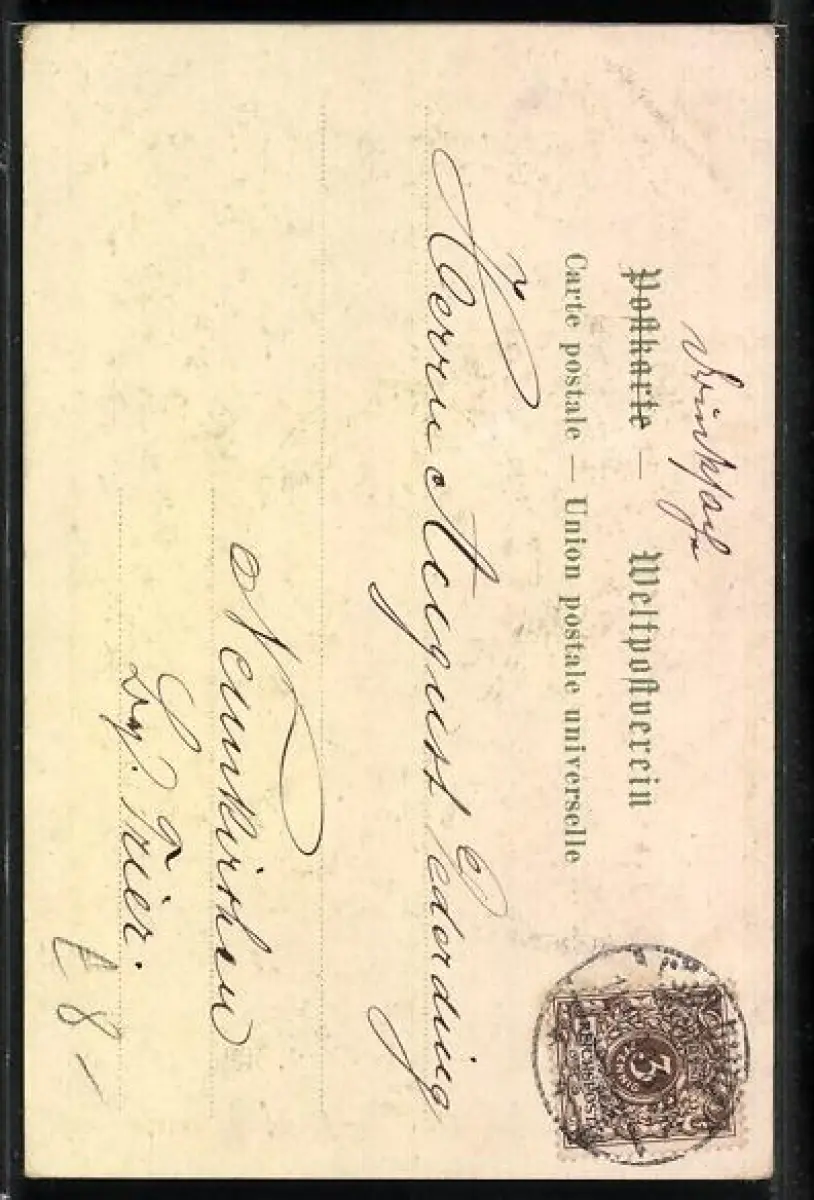 Drucksache
Postkarte — Weltpostverein
Carte postale — Union postale universelle
Herrn August Pedording
Neunkirchen
Bz. Trier.
8
3
PFENNIG
REICHSPOST